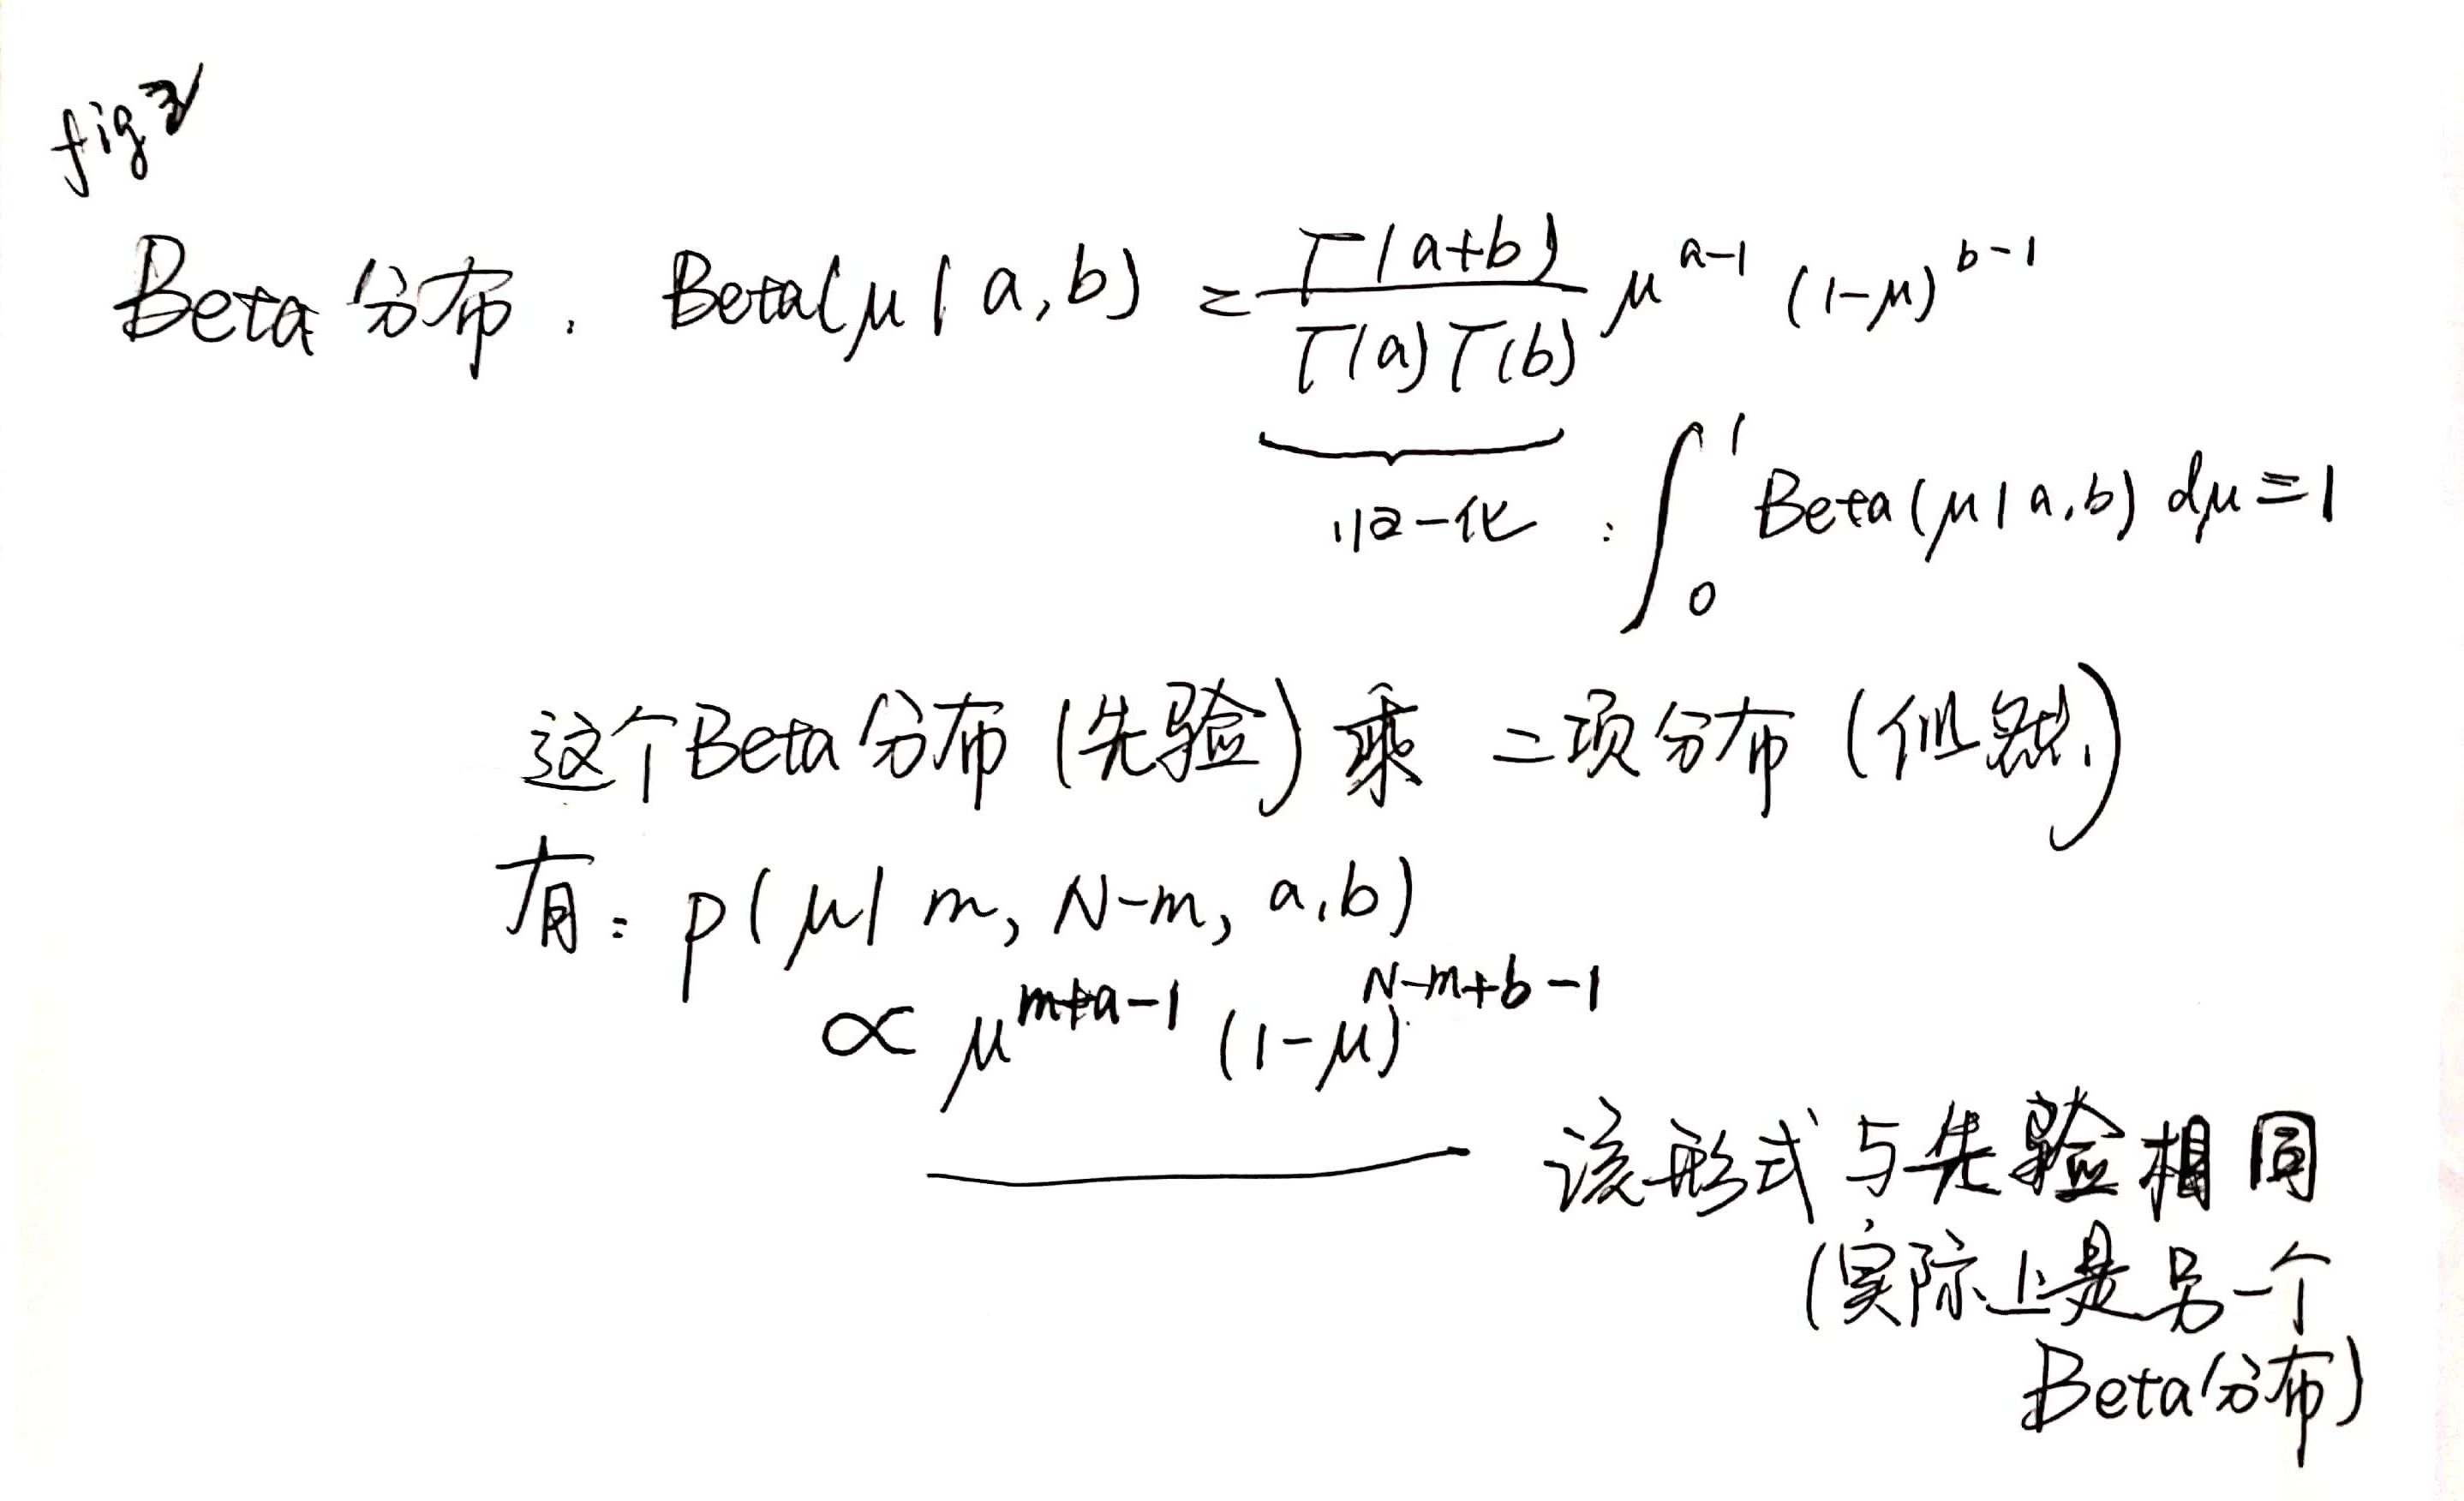 fig 3
Beta分布: Beta(μ|a,b) = Γ(a+b) / Γ(a)Γ(b) μ^{a-1} (1-μ)^{b-1}
归一化: ∫_0^1 Beta(μ|a,b) dμ = 1
这个Beta分布(先验)乘 二项分布(似然)
有: p(μ| m, N-m, a,b)
∝ μ^{m+a-1} (1-μ)^{N-m+b-1}
该形式与先验相同
(实际上是另一个
Beta分布)